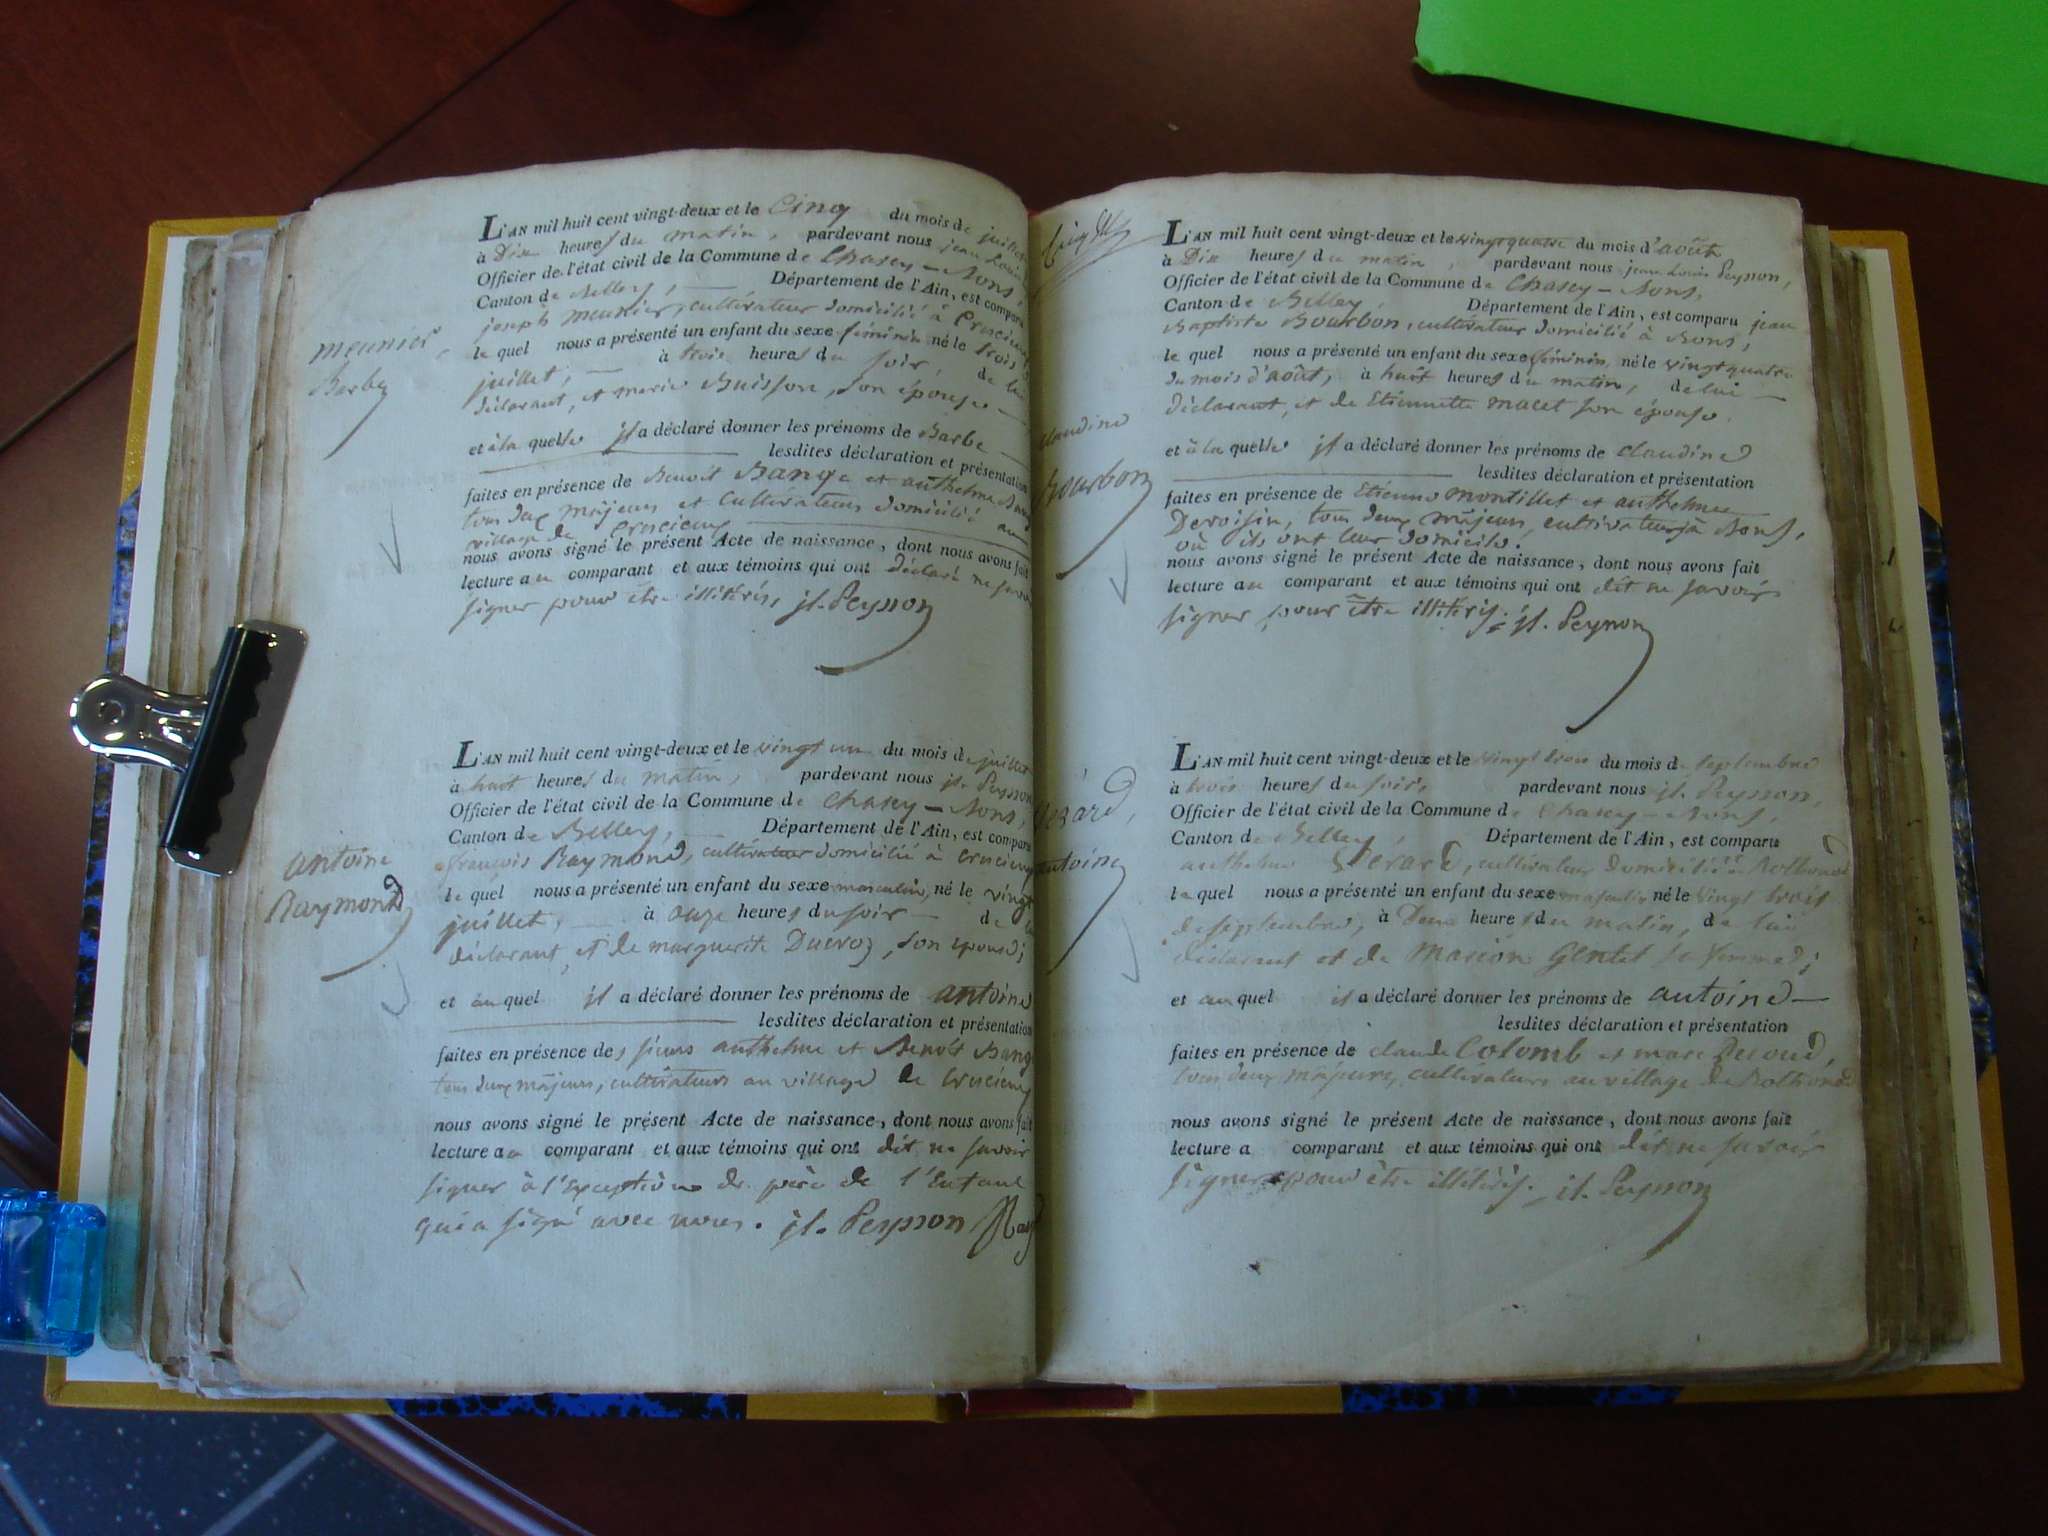 L'AN mil huit cent vingt-deux et le Cinq du mois de juillet
à Dix heures du matin, pardevant nous jean Louis
Officier de l'état civil de la Commune de Chasey-Bons,
Canton de Belley, Département de l'Ain, est comparu
joseph meunier, cultivateur domicilié à
le quel nous a présenté un enfant du sexe féminin né le trois
juillet, à trois heures du soir, de lui
déclarant, et marie Buisson, son épouse
et à la quelle il a déclaré donner les prénoms de Barbe
lesdites déclaration et présentation
faites en présence de Benoit Bange et anthelme
tous deux majeurs et Cultivateurs domicilié au
village de
nous avons signé le présent Acte de naissance, dont nous avons fait
lecture au comparant et aux témoins qui ont déclaré ne savoir
signer pour être illitérés, jl. Peysson
meunier,
Barbe
L'AN mil huit cent vingt-deux et le vingt un du mois de juillet
à huit heures du matin, pardevant nous jl. Peysson
Officier de l'état civil de la Commune de Chasey-Bons,
Canton de Belley, Département de l'Ain, est comparu
françois Raymond, cultivateur domicilié à
le quel nous a présenté un enfant du sexe masculin, né le vingt
juillet, à onze heures du soir de
déclarant, et de marguerite Ducroz, son épouse;
et au quel il a déclaré donner les prénoms de antoine
lesdites déclaration et présentation
faites en présence des sieurs anthelme et Benoît Bange
tous deux majeurs, cultivateurs au village de
nous avons signé le présent Acte de naissance, dont nous avons fait
lecture au comparant et aux témoins qui ont dit ne savoir
signer à l'Exception de père de l'Enfant
qui a signé avec nous. jl. Peysson Ray
antoine
Raymond
L'AN mil huit cent vingt-deux et le vingt quatre du mois d'août
à Dix heures du matin, pardevant nous jean Louis Peysson,
Officier de l'état civil de la Commune de Chasey-Bons,
Canton de Belley, Département de l'Ain, est comparu jean
Baptiste Bourbon, cultivateur domicilié à Bons,
le quel nous a présenté un enfant du sexe féminin, né le vingt quatre
du mois d'août, à huit heures du matin, de lui
déclarant, et de Etiennette macet son épouse.
et à la quelle il a déclaré donner les prénoms de claudine
lesdites déclaration et présentation
faites en présence de Etienne montillet et anthelme
Devoisin, tous deux majeurs, cultivateurs à Bons,
où ils ont leur domicile.
nous avons signé le présent Acte de naissance, dont nous avons fait
lecture au comparant et aux témoins qui ont dit ne savoir
signer pour être illitérés. jl. Peysson
claudine
Bourbon
L'AN mil huit cent vingt-deux et le vingt trois du mois de septembre
à trois heures du soir, pardevant nous jl. Peysson,
Officier de l'état civil de la Commune de Chasey-Bons,
Canton de Belley, Département de l'Ain, est comparu
anthelme cultivateur domicilié à Rothonod
le quel nous a présenté un enfant du sexe masculin né le vingt trois
de septembre, à Deux heures du matin, de lui
déclarant et de Marion Gentet sa femme;
et au quel il a déclaré donner les prénoms de antoine
lesdites déclaration et présentation
faites en présence de claude Colomb et marc
tous deux majeurs, cultivateurs au village de Rothonod
nous avons signé le présent Acte de naissance, dont nous avons fait
lecture a comparant et aux témoins qui ont dit ne savoir
signer pour être illitérés. jl. Peysson
antoine